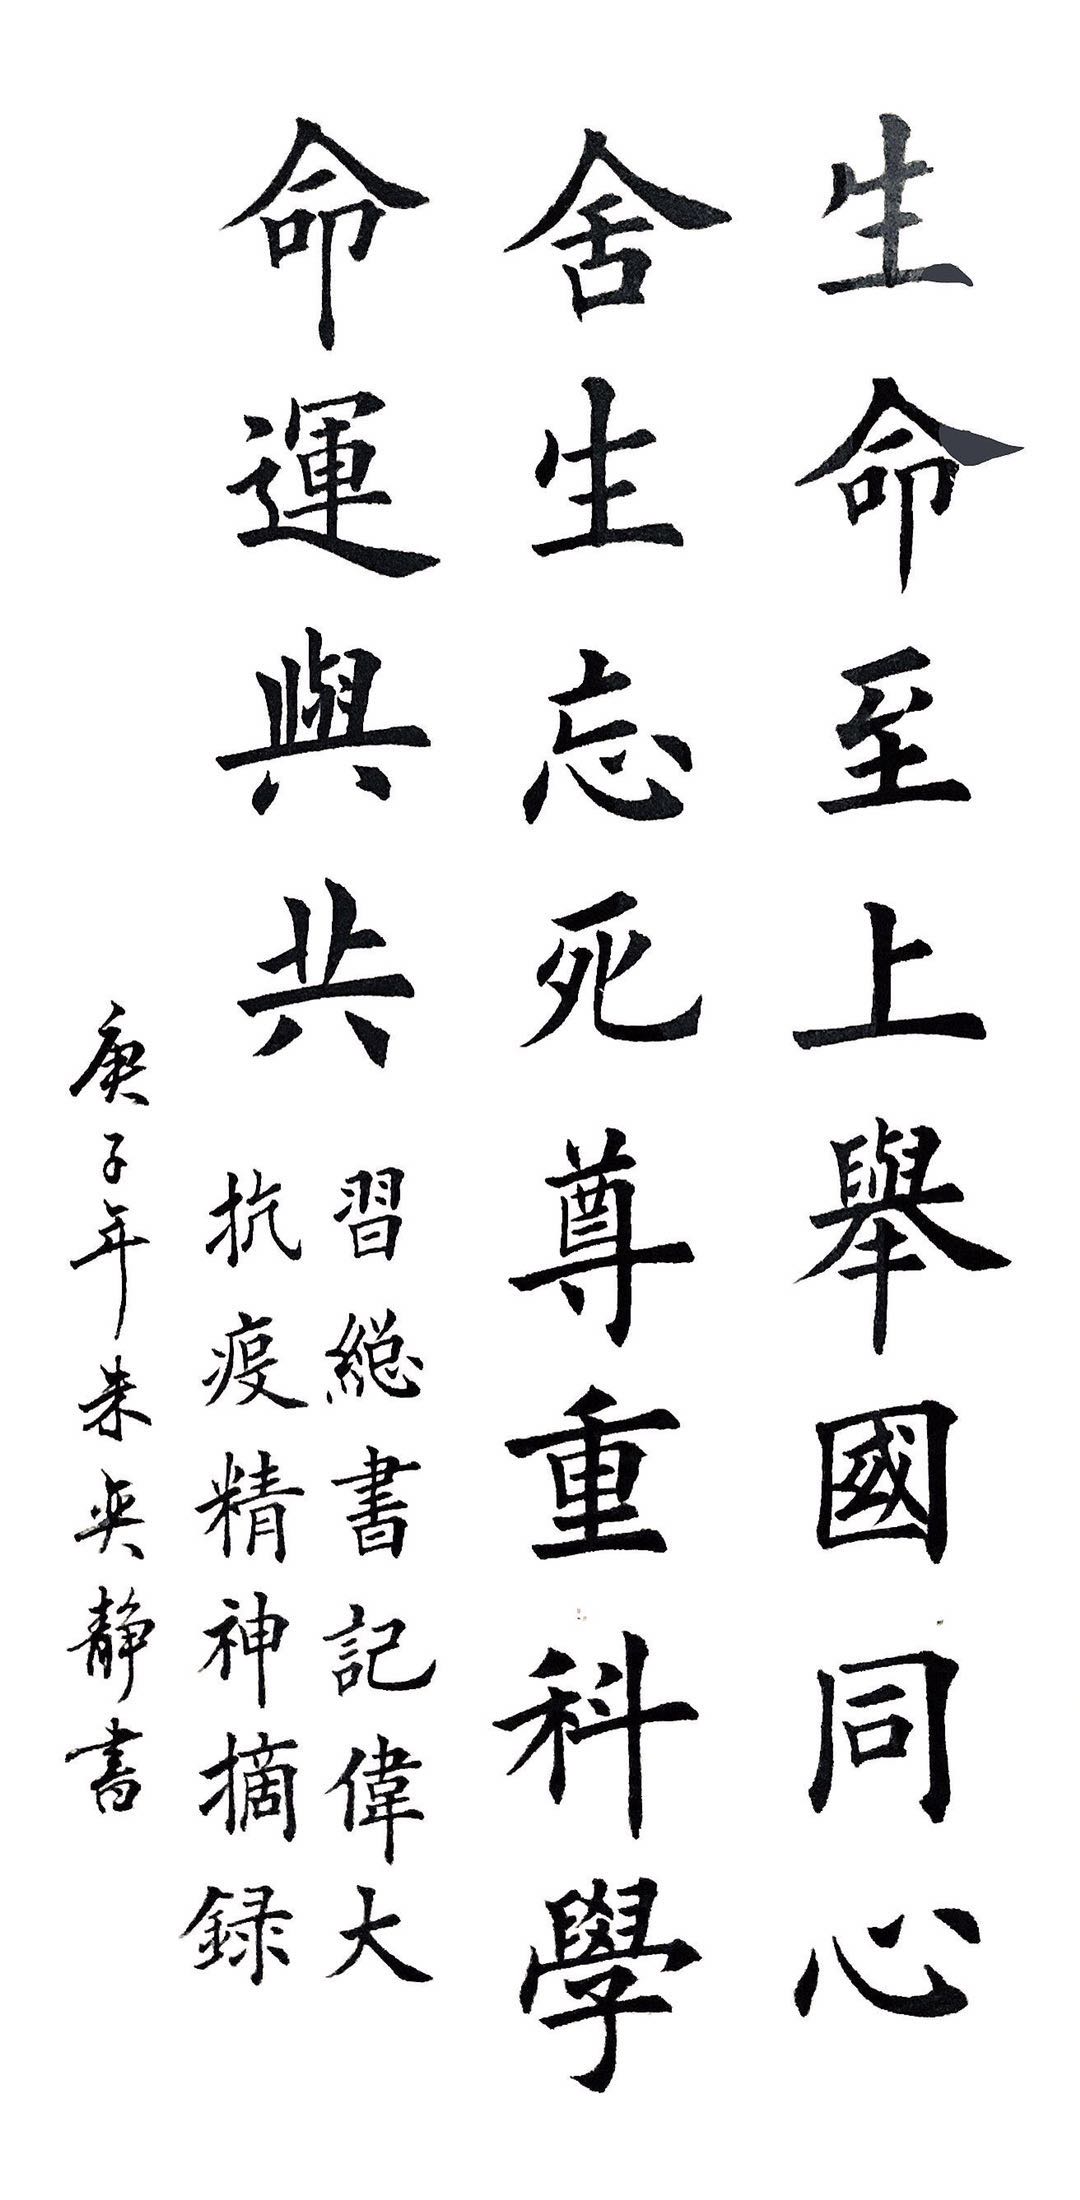 生命至上舉國同心
舍生忘死尊重科學
命運與共
習總書記偉大
抗疫精神摘録
庚子年朱奕靜書